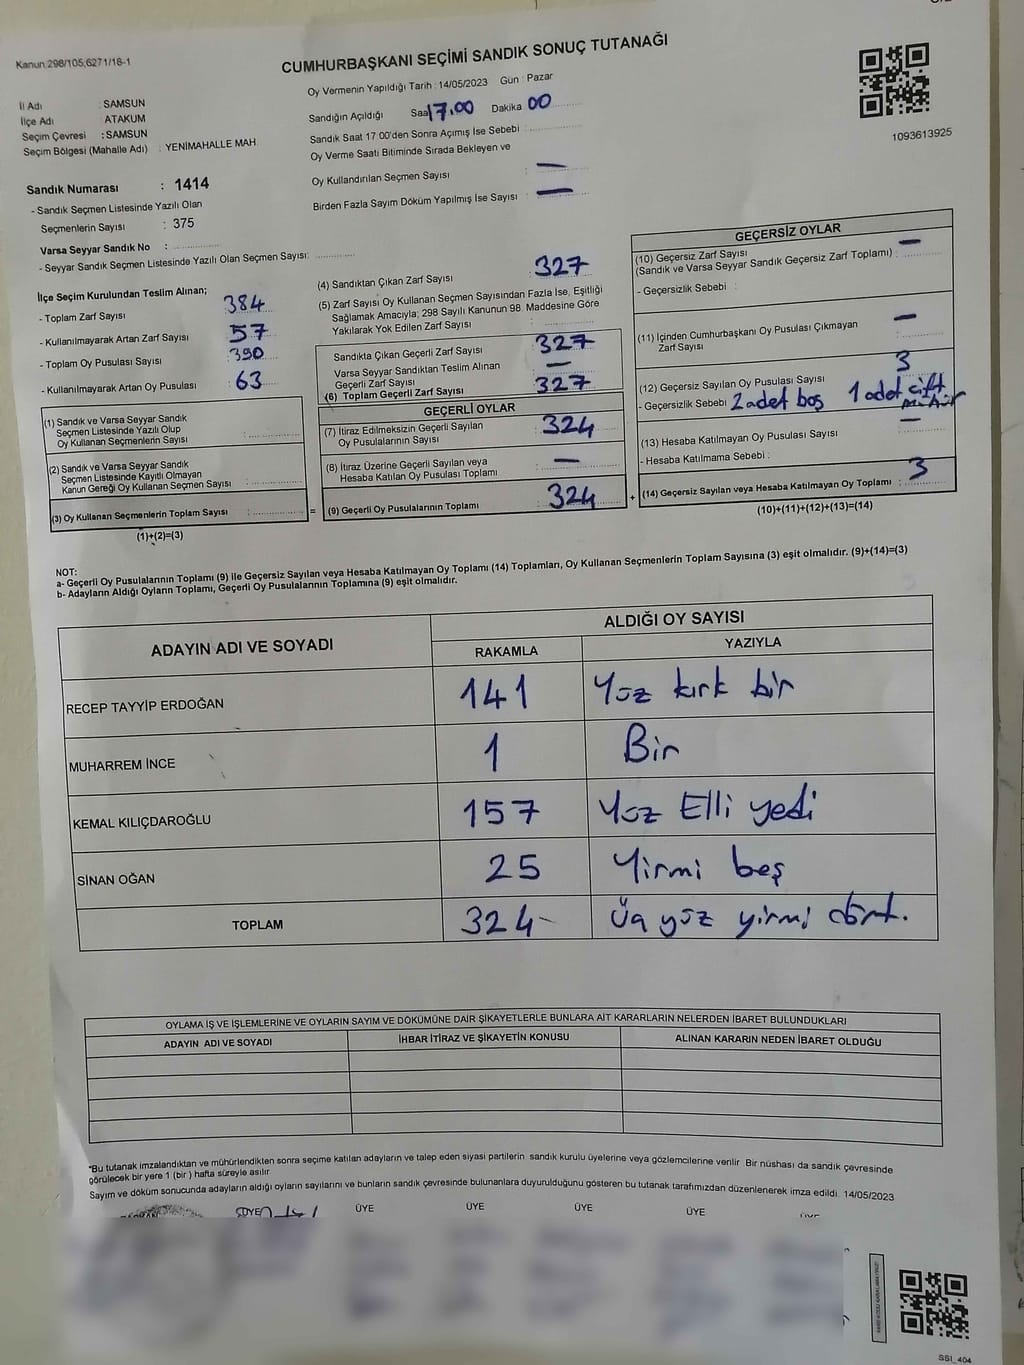 Kanun:298/105;6271/18-1
CUMHURBAŞKANI SEÇİMİ SANDIK SONUÇ TUTANAĞI
İl Adı : SAMSUN
İlçe Adı : ATAKUM
Seçim Çevresi : SAMSUN
Seçim Bölgesi (Mahalle Adı) : YENİMAHALLE MAH
Sandık Numarası : 1414
- Sandık Seçmen Listesinde Yazılı Olan
Seçmenlerin Sayısı : 375
Varsa Seyyar Sandık No :
- Seyyar Sandık Seçmen Listesinde Yazılı Olan Seçmen Sayısı:
Oy Vermenin Yapıldığı Tarih : 14/05/2023 Gün : Pazar
Sandığın Açıldığı Saat 17.00 Dakika 00
Sandık Saat 17:00'den Sonra Açımış İse Sebebi :
Oy Verme Saati Bitiminde Sırada Bekleyen ve
Oy Kullandırılan Seçmen Sayısı : —
Birden Fazla Sayım Döküm Yapılmış İse Sayısı : —
1093613925
İlçe Seçim Kurulundan Teslim Alınan;
- Toplam Zarf Sayısı : 384
- Kullanılmayarak Artan Zarf Sayısı : 57
- Toplam Oy Pusulası Sayısı : 390
- Kullanılmayarak Artan Oy Pusulası : 63
(1) Sandık ve Varsa Seyyar Sandık
Seçmen Listesinde Yazılı Olup
Oy Kullanan Seçmenlerin Sayısı :
(2) Sandık ve Varsa Seyyar Sandık
Seçmen Listesinde Kayıtlı Olmayan
Kanun Gereği Oy Kullanan Seçmen Sayısı :
(3) Oy Kullanan Seçmenlerin Toplam Sayısı : =
(1)+(2)=(3)
(4) Sandıktan Çıkan Zarf Sayısı : 327
(5) Zarf Sayısı Oy Kullanan Seçmen Sayısından Fazla İse, Eşitliği
Sağlamak Amacıyla; 298 Sayılı Kanunun 98. Maddesine Göre
Yakılarak Yok Edilen Zarf Sayısı :
Sandıkta Çıkan Geçerli Zarf Sayısı : 327
Varsa Seyyar Sandıktan Teslim Alınan
Geçerli Zarf Sayısı : —
(6) Toplam Geçerli Zarf Sayısı : 327
GEÇERLİ OYLAR
(7) İtiraz Edilmeksizin Geçerli Sayılan
Oy Pusulalarının Sayısı : 324
(8) İtiraz Üzerine Geçerli Sayılan veya
Hesaba Katılan Oy Pusulası Toplamı : —
(9) Geçerli Oy Pusulalarının Toplamı : 324 +
GEÇERSİZ OYLAR
(10) Geçersiz Zarf Sayısı
(Sandık ve Varsa Seyyar Sandık Geçersiz Zarf Toplamı) : —
- Geçersizlik Sebebi :
(11) İçinden Cumhurbaşkanı Oy Pusulası Çıkmayan
Zarf Sayısı : —
(12) Geçersiz Sayılan Oy Pusulası Sayısı : 3
- Geçersizlik Sebebi : 2 adet boş 1 adet çift mühür
(13) Hesaba Katılmayan Oy Pusulası Sayısı : —
- Hesaba Katılmama Sebebi :
(14) Geçersiz Sayılan veya Hesaba Katılmayan Oy Toplamı : 3
(10)+(11)+(12)+(13)=(14)
NOT:
a- Geçerli Oy Pusulalarının Toplamı (9) ile Geçersiz Sayılan veya Hesaba Katılmayan Oy Toplamı (14) Toplamları, Oy Kullanan Seçmenlerin Toplam Sayısına (3) eşit olmalıdır. (9)+(14)=(3)
b- Adayların Aldığı Oyların Toplamı, Geçerli Oy Pusulalarının Toplamına (9) eşit olmalıdır.
ADAYIN ADI VE SOYADI ALDIĞI OY SAYISI
RAKAMLA YAZIYLA
RECEP TAYYİP ERDOĞAN 141 Yüz kırk bir
MUHARREM İNCE 1 Bir
KEMAL KILIÇDAROĞLU 157 Yüz Elli yedi
SİNAN OĞAN 25 Yirmi beş
TOPLAM 324 Üç yüz yirmi dört.
OYLAMA İŞ VE İŞLEMLERİNE VE OYLARIN SAYIM VE DÖKÜMÜNE DAİR ŞİKAYETLERLE BUNLARA AİT KARARLARIN NELERDEN İBARET BULUNDUKLARI
ADAYIN ADI VE SOYADI İHBAR İTİRAZ VE ŞİKAYETİN KONUSU ALINAN KARARIN NEDEN İBARET OLDUĞU
"Bu tutanak imzalandıktan ve mühürlendikten sonra seçime katılan adayların ve talep eden siyasi partilerin sandık kurulu üyelerine veya gözlemcilerine verilir. Bir nüshası da sandık çevresinde
görülecek bir yere 1 (bir) hafta süreyle asılır
Sayım ve döküm sonucunda adayların aldığı oyların sayılarını ve bunların sandık çevresinde bulunanlara duyurulduğunu gösteren bu tutanak tarafımızdan düzenlenerek imza edildi. 14/05/2023
ÜYE ÜYE ÜYE ÜYE
SSI_404